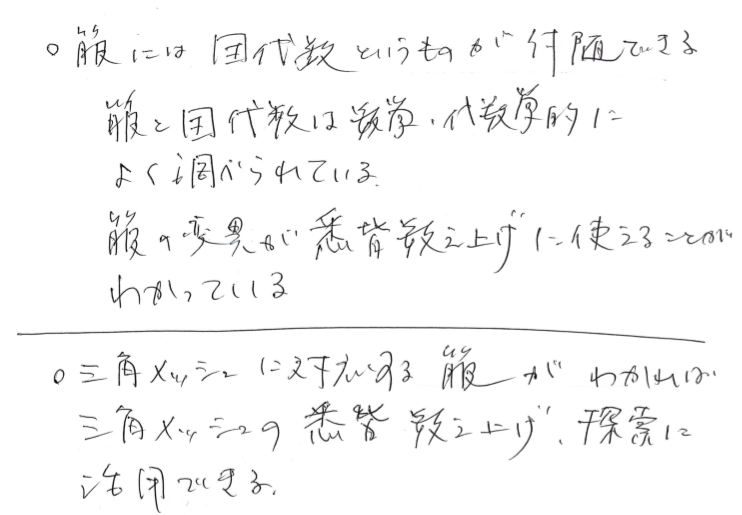 ○ 箙には 団代数というものが付随できる
箙と団代数は数学・代数学的に
よく調べられている.
箙の変異が悉皆数え上げに使えることが
わかっている
○ 三角メッシュに対応する箙がわかれば
三角メッシュの悉皆数え上げ、探索に
活用できる.